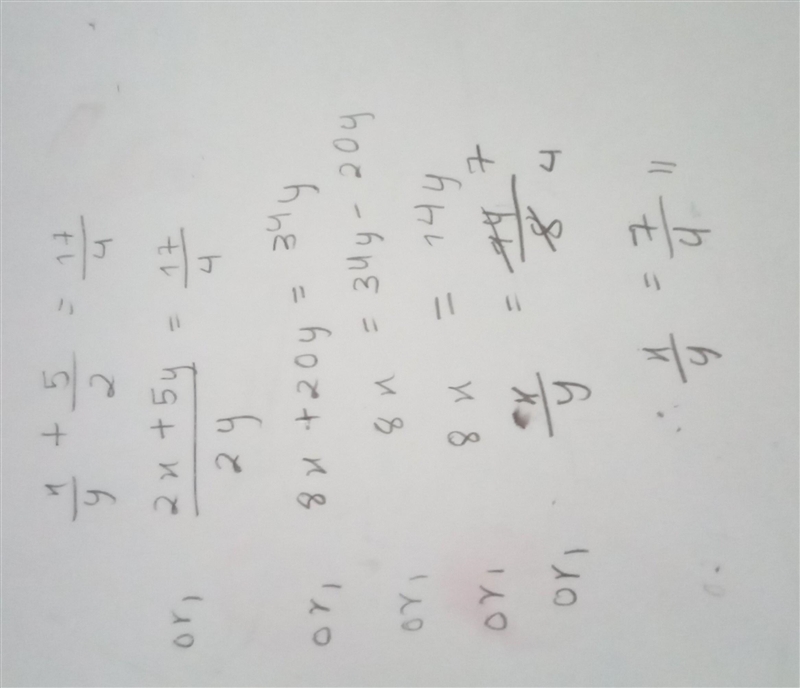 x/y + 5/2 = 17/4
or, (2x + 5y)/2y = 17/4
or, 8x + 20y = 34y
or, 8x = 34y - 20y
or, 8x = 14y
or, x/y = 14/8 7 4
∴ x/y = 7/4 //